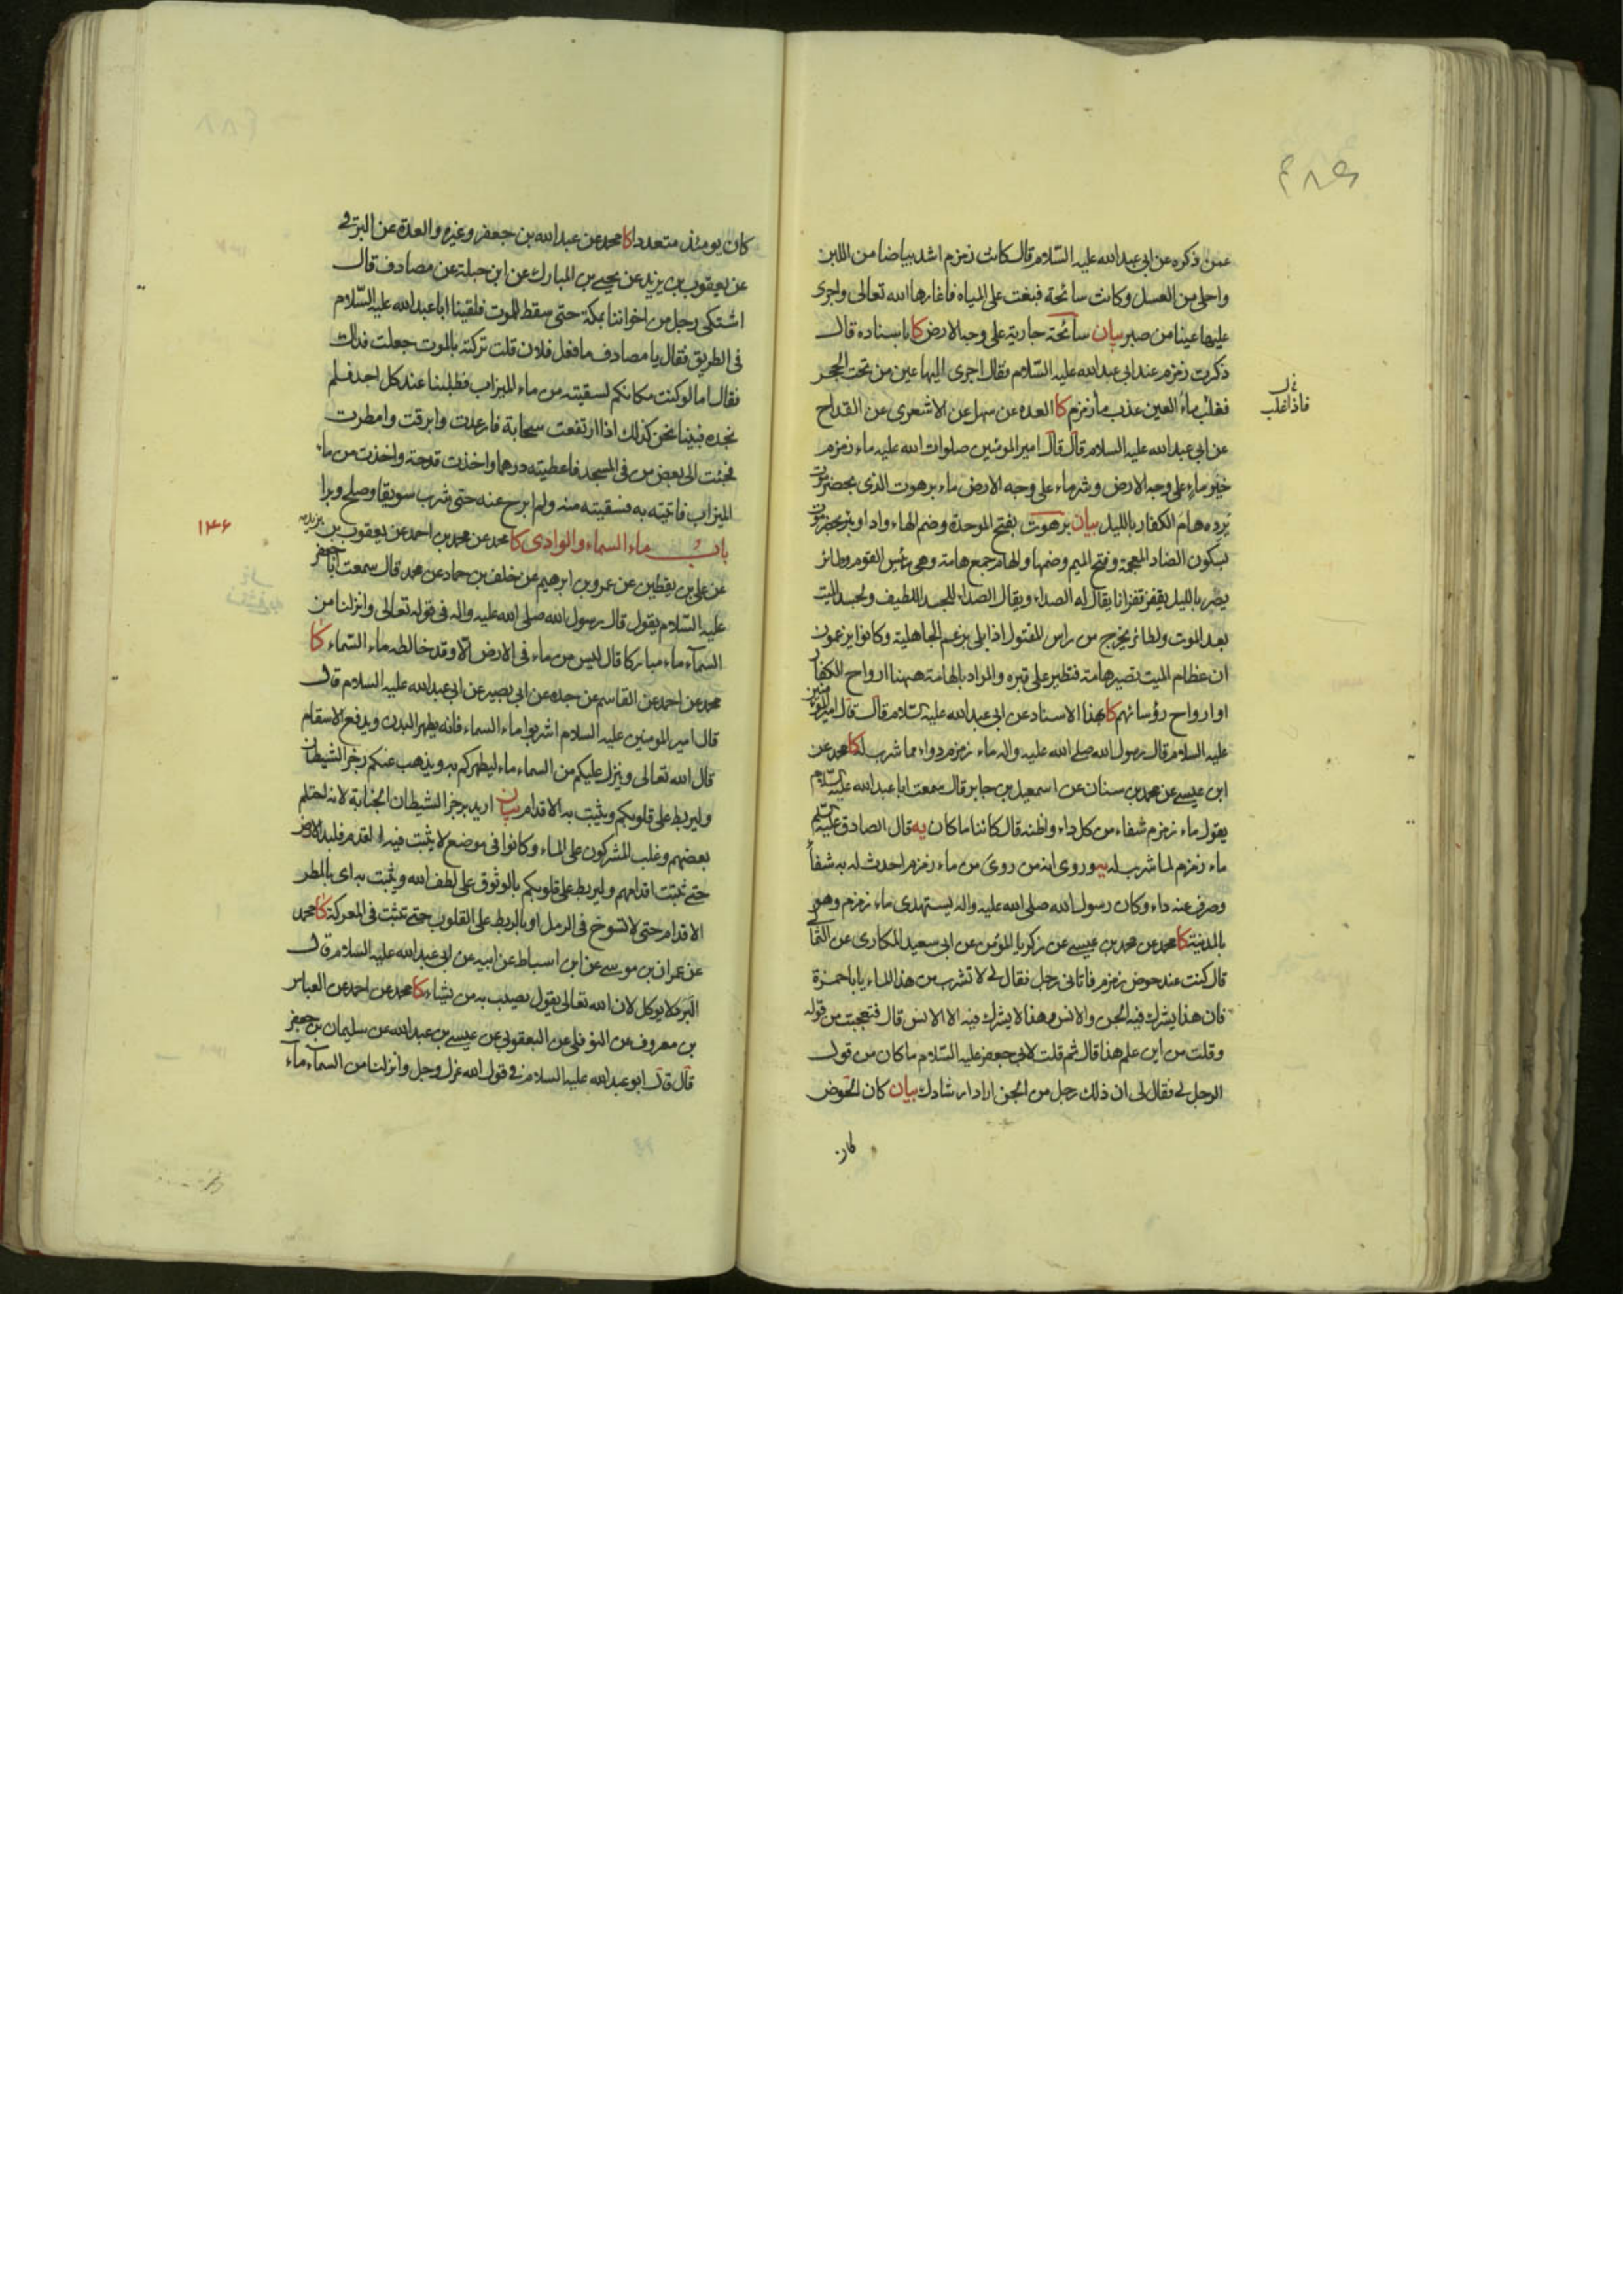 ۴۸۵
عمن ذكره عن ابي عبد الله عليه السّلام قال كانت زمزم اشد بياضا من اللبن
واحلى من العسل وكانت سائحة فبغت على المياه فاغارها الله تعالى واجرى
عليها عينا من صبر بيان سائحة جارية على وجه الارض كا باسناده قال
ذكرت زمزم عند ابي عبد الله عليه السّلام فقال اجرى اليها عين من تحت الحجر
فغلب ماء العين عذب ماء زمزم كا العدة عن سهل عن الاشعري عن القداح
فاذا غلب
عن ابي عبد الله عليه السلام قال قال امير المؤمنين صلوات الله عليه ماء زمزم
خير ماء على وجه الارض وشر ماء على وجه الارض ماء برهوت الذي بحضرموت
يرده هام الكفار بالليل بيان برهوت بفتح الموحدة وضم الهاء واد او بئر بحضرموت
بسكون الضاد المعجمة وفتح الميم وضمها والهام جمع هامة وهي رئيس القوم وطائر
يصر بالليل يقفز قفزانا يقال له الصداء ويقال الصداء للجسد اللطيف ولجسد الميت
بعد الموت ولطائر يخرج من راس المقتول اذا بلي بزعم الجاهلية وكانوا يزعمون
ان عظام الميت تصير هامة فتطير على قبره والمراد بالهامة ههنا ارواح الكفار
او ارواح رؤسائهم كا بهذا الاسناد عن ابي عبد الله عليه السلام قال قال امير المؤمنين
عليه السلام قال رسول الله صلى الله عليه واله ماء زمزم دواء مما شرب له كا محمد عن
ابن عيسى عن محمد بن سنان عن اسمعيل بن جابر قال سمعت ابا عبد الله عليه السلام
يقول ماء زمزم شفاء من كل داء واظنه قال كائنا ما كان يه قال الصادق عليه السلام
ماء زمزم لما شرب له يه وروى انه من روى من ماء زمزم احدث له به شفاء
وصرف عنه داء وكان رسول الله صلى الله عليه واله يستهدى ماء زمزم وهو في
بالمدينة كا محمد عن محمد بن عيسى عن زكريا المؤمن عن ابي سعيد المكاري عن الثمالي
قال كنت عند حوض زمزم فاتاني رجل فقال لي لا تشرب من هذا الماء يا با حمزة
فان هذا يشرك فيه الجن والانس وهذا لا يشرك فيه الا الانس قال فتعجبت من قوله
وقلت من اين علم هذا قال ثم قلت لابي جعفر عليه السّلام ما كان من قول
الرجل لي فقال لي ان ذلك رجل من الجن اراد ارشادك بيان كان الحوض
كان
كان يومئذ متعددا كا محمد عن عبد الله بن جعفر وغيره والعدة عن البرقي
عن يعقوب بن يزيد عن يحيى بن المبارك عن ابن جبلة عن مصادف قال
اشتكى رجل من اخواننا بمكة حتى سقط للموت فلقينا ابا عبد الله عليه السّلام
في الطريق فقال يا مصادف ما فعل فلان قلت تركته بالموت جعلت فداك
فقال اما لو كنت مكانكم لسقيته من ماء الميزاب فطلبنا عند كل احد فلم
نجده فبينا نحن كذلك اذا ارتفعت سحابة فارعدت وابرقت وامطرت
فجئت الى بعض من في المسجد فاعطيته درهما واخذت قدحه واخذت من ماء
الميزاب فاتيته به فسقيته منه ولم ابرح عنه حتى شرب سويقا وصلح وبرا
باب ماء السماء والوادي كا محمد عن محمد بن احمد عن يعقوب بن يزيد
۱۴۶
عن علي بن يقطين عن عمرو بن ابرهيم عن خلف بن حماد عن محمد قال سمعت ابا جعفر
عليه السّلام يقول قال رسول الله صلى الله عليه واله في قوله تعالى وانزلنا من
السمآء ماء مباركا قال ليس من ماء في الارض الا وقد خالطه ماء السّماء كا
محمد عن احمد عن القاسم عن جده عن ابي بصير عن ابي عبد الله عليه السلام قال
قال امير المومنين عليه السلام اشربوا ماء السماء فانه يطهر البدن ويدفع الاسقام
قال الله تعالى وينزل عليكم من السماء ماء ليطهركم به ويذهب عنكم رجز الشيطان
وليربط على قلوبكم ويثبت به الاقدام بيان اريد برجز الشيطان الجنابة لانه احتلم
بعضهم وغلب المشركون على الماء وكانوا في موضع لا يثبت فيه القدم فلبد الارض
حتى ثبتت اقدامهم وليربط على قلوبكم بالوثوق على لطف الله ويثبت به اى بالمطر
الاقدام حتى لا تسوخ في الرمل او بالربط على القلوب حتى تثبت في المعركة كا محمد
عن عمران بن موسى عن ابن اسباط عن ابيه عن ابي عبد الله عليه السلام قال
البرد لا يوكل لان الله تعالى يقول يصيب به من يشاء كا محمد عن احمد عن العباس
بن معروف عن النوفلي عن اليعقوبي عن عيسى بن عبد الله عن سليمان بن جعفر
قال قال ابو عبد الله عليه السلام في قول الله عز وجل وانزلنا من السمآء مآء